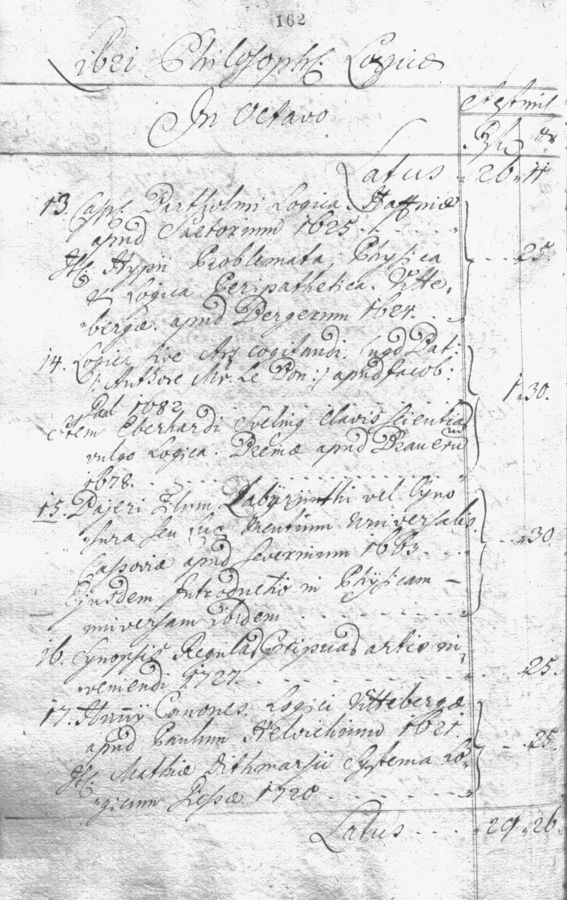 162
Libri Philosoph: Logicæ
In Octavo
Æstimat
Latus 26 " 11
13. Casp. Bartholini Logica. Haffniæ
apud Sartorium 1625.
It: Hypii Problemata, Physica
& Logica Peripathetica. Witte-
bergæ. apud Bergerum 1684. 25
14. Logica sive Ars cogitandi. Lugd. Bat:
/: Authore Mr. Le Bon :/ apud Jacob:
1682
Item Eberhardi Sveling Clavis scientiæ
vulgo Logica. Bremæ apud Brauerum
1678. 1 " 30.
15. Bajeri Labyrinthi vel Cyno
sura seu Lux Mentium Universalis
Cassoviæ apud Severinum 1663.
Ejusdem Introductio in Physicam
universam ibidem 30
16. Synopsis artis in-
veniendi 1727. 25.
17. Canones Logici Wittebergæ
apud Paulum Helvichium 1621.
It: Mathiæ Dithmarsii Systema Lo-
gicum 1720 25
Latus 29 " 26.